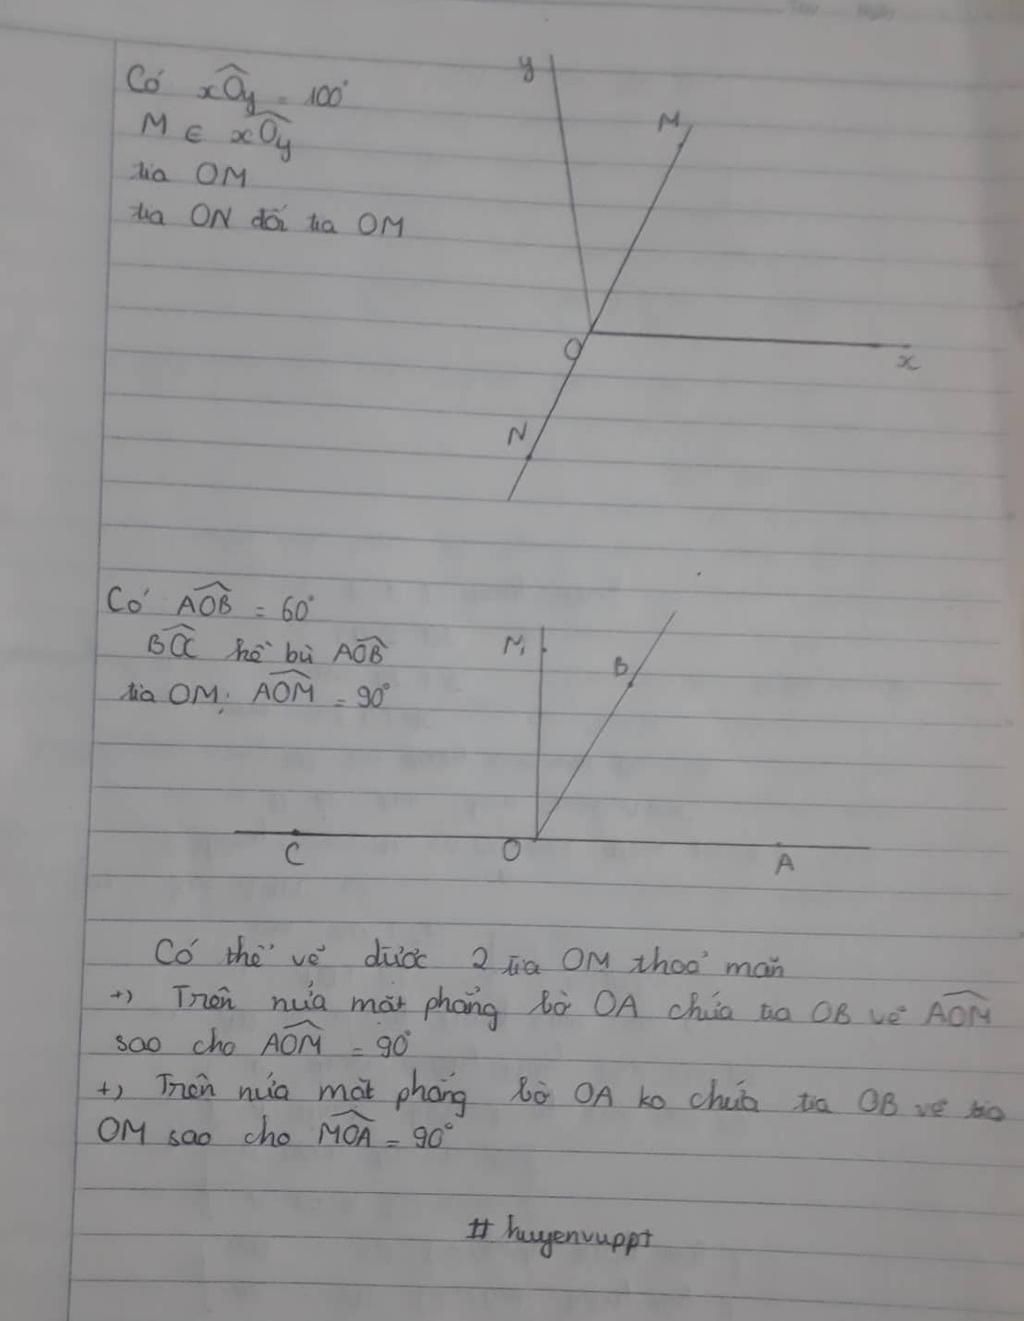 Có xOy = 100°
M ∈ xOy
tia OM
tia ON đối tia OM
y
M
O
x
N
Có AOB = 60°
BOC kề bù AOB
tia OM; AOM = 90°
M
B
C
O
A
Có thể vẽ được 2 tia OM thoả mãn
+) Trên nửa mặt phẳng bờ OA chứa tia OB vẽ AOM
sao cho AOM = 90°
+) Trên nửa mặt phẳng bờ OA ko chứa tia OB vẽ tia
OM sao cho MOA = 90°
# huyenvuppt